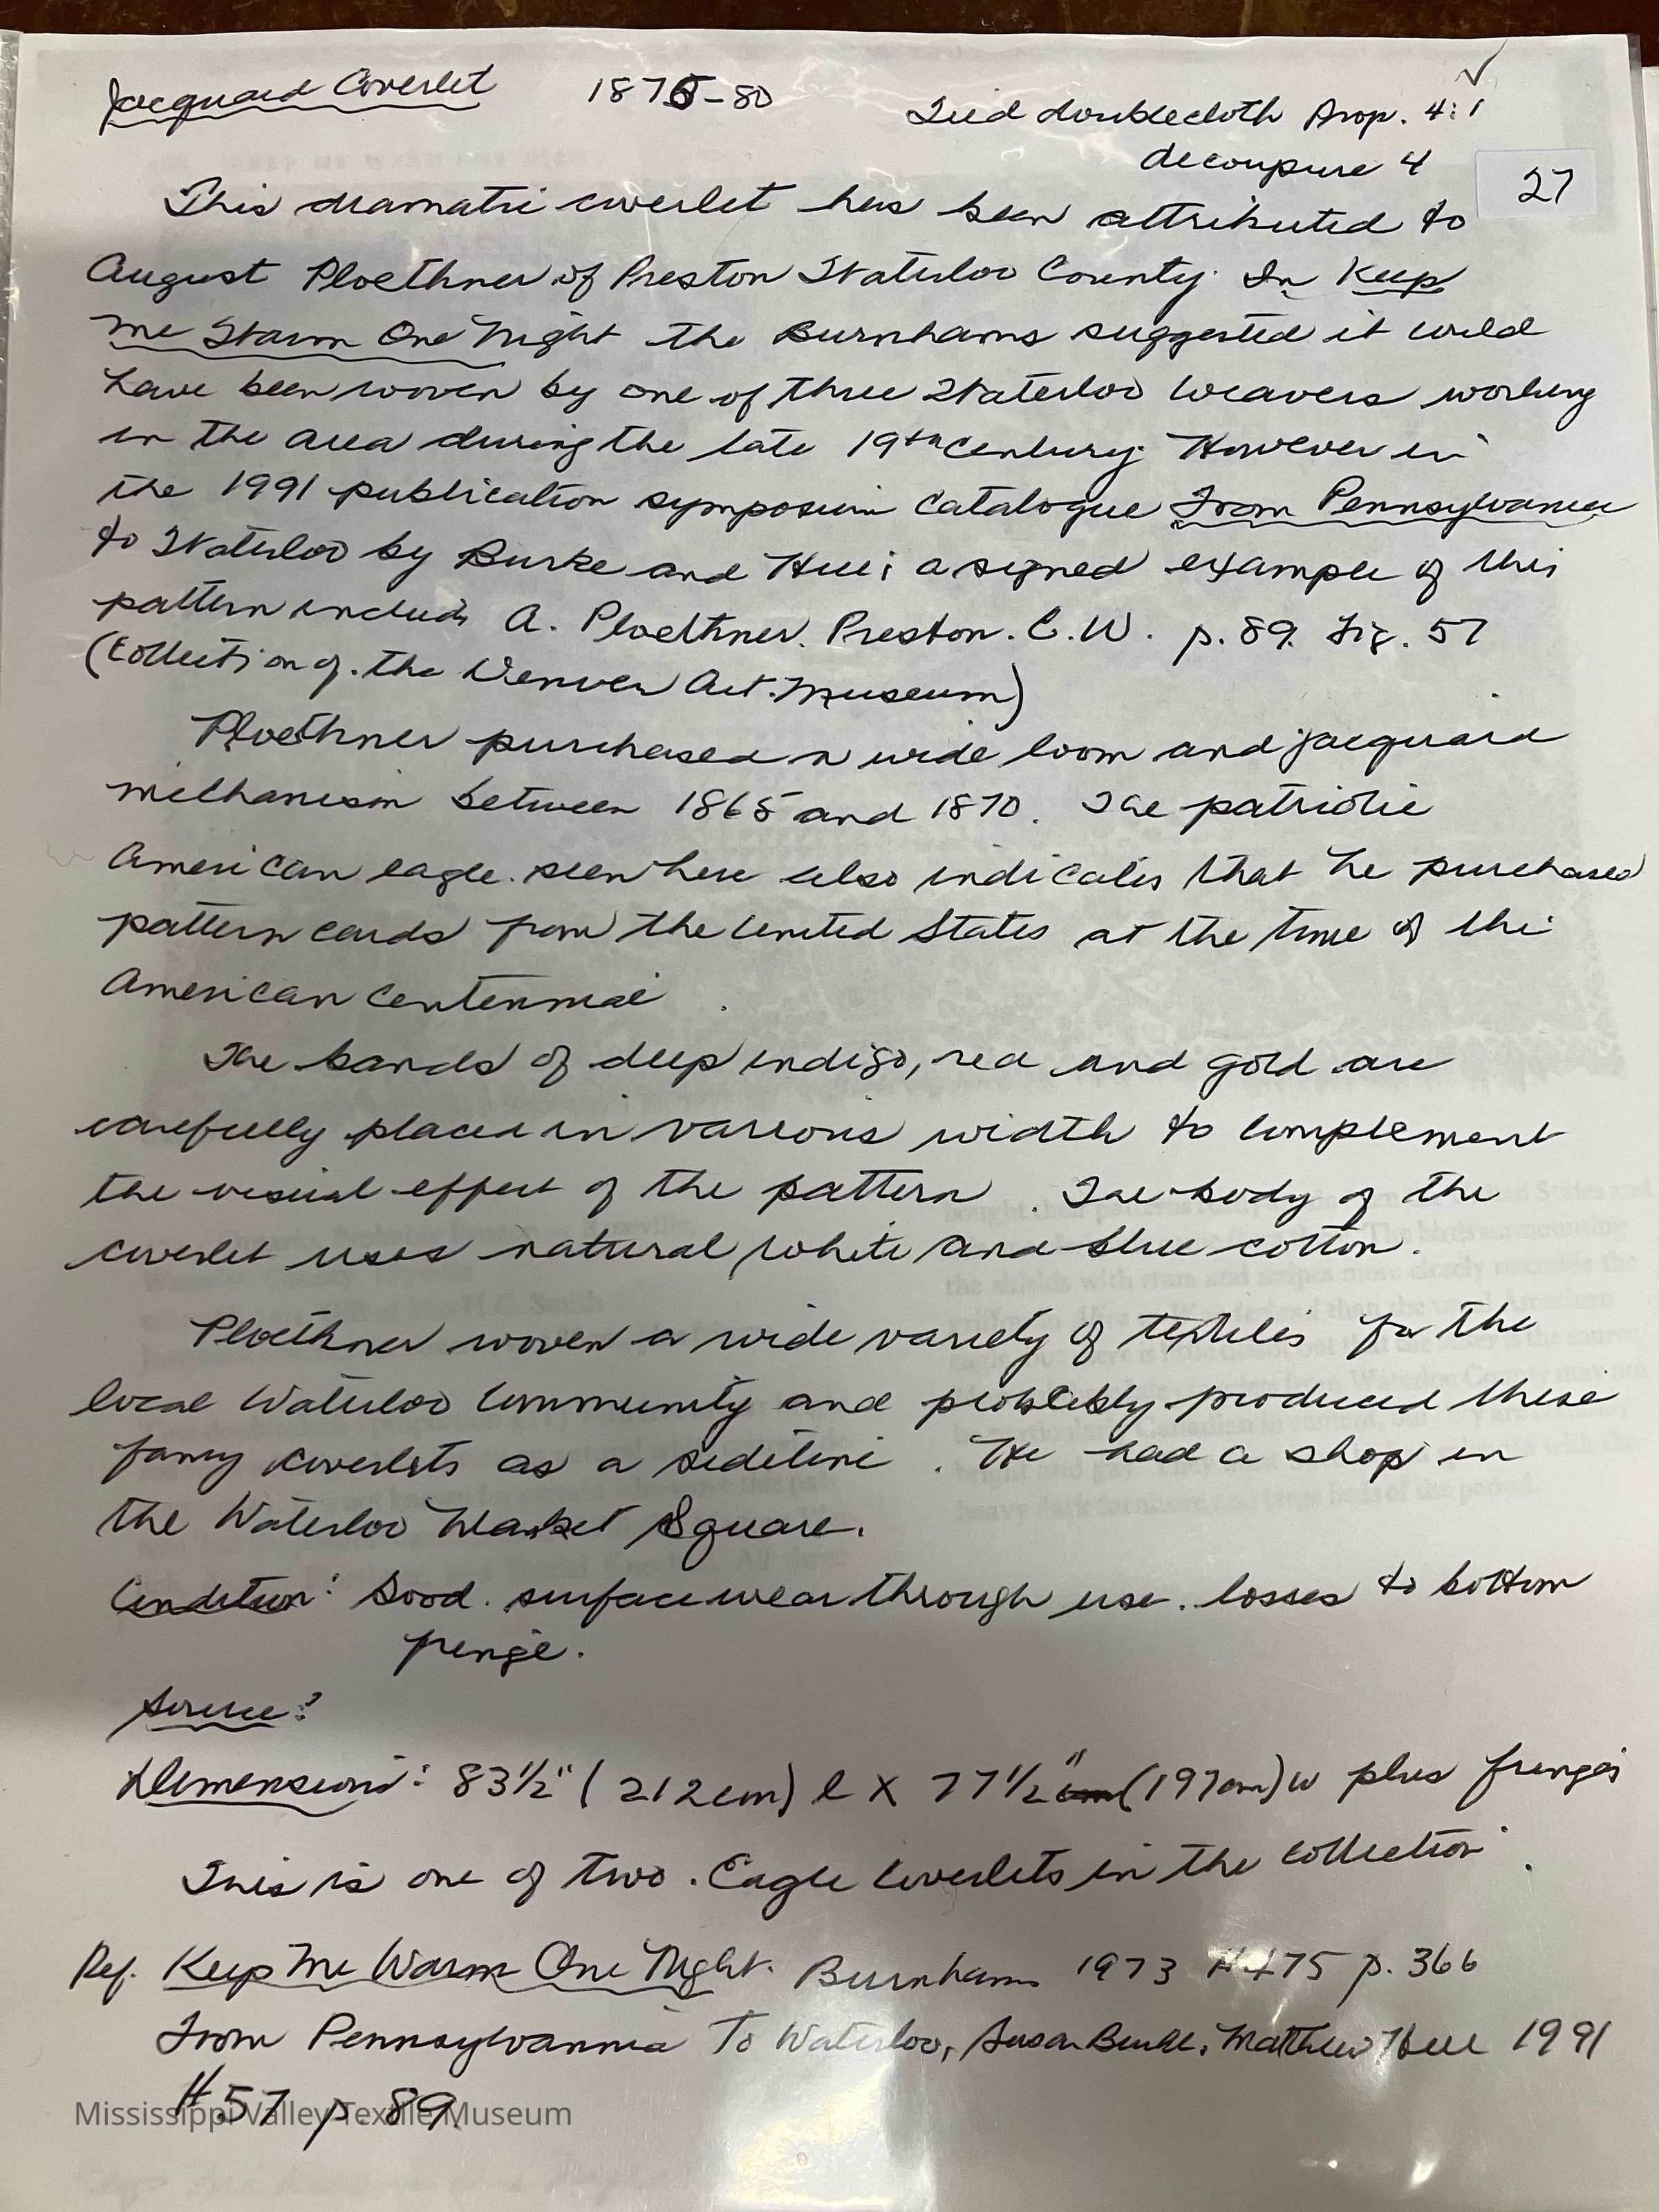 Jacquard Coverlet 1875-80 Tied doublecloth Prop. 4:1
decoupure 4
27
This dramatic coverlet has been attributed to
August Ploethner of Preston Waterloo County. In Keep
Me Warm One Night the Burnhams suggested it could
have been woven by one of three Waterloo weavers working
in the area during the late 19th century. However in
the 1991 publication symposium catalogue From Pennsylvania
to Waterloo by Burke and Hill; a signed example of this
pattern includes A. Ploethner. Preston. C.W. p. 89. Fig. 57
(Collection of the Denver Art Museum)
Ploethner purchased a wide loom and jacquard
mechanism between 1865 and 1870. The patriotic
American eagle seen here also indicates that he purchased
pattern cards from the United States at the time of the
American Centennial.
The bands of deep indigo, red and gold are
carefully placed in various width to complement
the visual effect of the pattern. The body of the
coverlet uses natural white and blue cotton.
Ploethner woven a wide variety of textiles for the
local Waterloo Community and probably produced these
fancy coverlets as a sideline. He had a shop in
the Waterloo Market Square.
Condition: Good. surface wear through use. losses to bottom
fringe.
Source:
Dimensions: 83 1/2" (212cm) l X 77 1/2" cm (197cm) w plus fringes
This is one of two Eagle Coverlets in the collection.
Ref. Keep Me Warm One Night. Burnhams 1973 #475 p. 366
From Pennsylvannia To Waterloo, Susan Burke, Matthew Hill 1991
#57 p. 89
Mississippi Valley Textile Museum